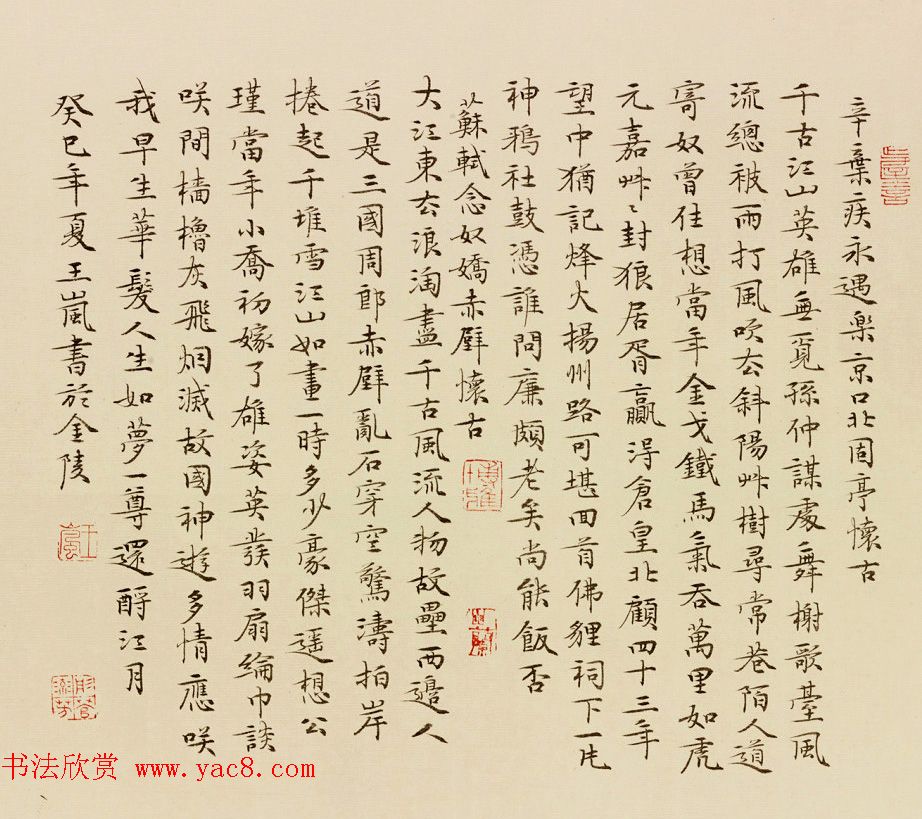 辛棄疾永遇樂京口北固亭懷古
千古江山英雄無覓孫仲謀處舞榭歌臺風
流總被雨打風吹去斜陽艸樹尋常巷陌人道
寄奴曾住想當年金戈鐵馬氣吞萬里如虎
元嘉艸艸封狼居胥贏得倉皇北顧四十三年
望中猶記烽火揚州路可堪回首佛貍祠下一片
神鴉社鼓憑誰問廉頗老矣尚能飯否
蘇軾念奴嬌赤壁懷古
大江東去浪淘盡千古風流人物故壘西邊人
道是三國周郎赤壁亂石穿空驚濤拍岸
捲起千堆雪江山如畫一時多少豪傑遥想公
瑾當年小喬初嫁了雄姿英發羽扇綸巾談
咲間檣櫓灰飛烟滅故國神遊多情應咲
我早生華髮人生如夢一尊還酹江月
癸巳年夏王嵐書於金陵
博雅
王嵐
书法欣赏 www.yac8.com